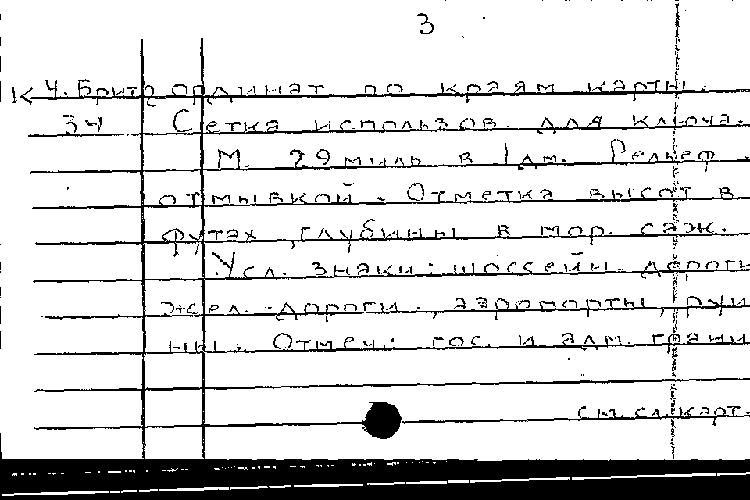 3
К 4. Брит ординат по краям карты.
34 Сетка использов. для ключа.
М. 29 миль в 1 дм. Рельеф -
отмывкой. Отметка высот в
футах, глубины в мор. саж.
Усл. знаки: шоссейн. дороги
жел. дороги, аэропорты, руи
ны. Отмеч: гос. и адм. грани
см. сл. карт.